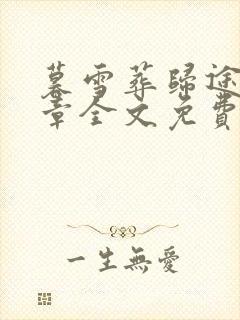 暮雪葬歸途
章全文免費
一生無愛